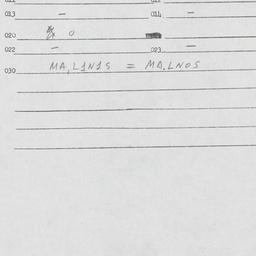 013 — 014 —
020 0
022 — 023 —
030 MA,L1N1S = MA.LNOS